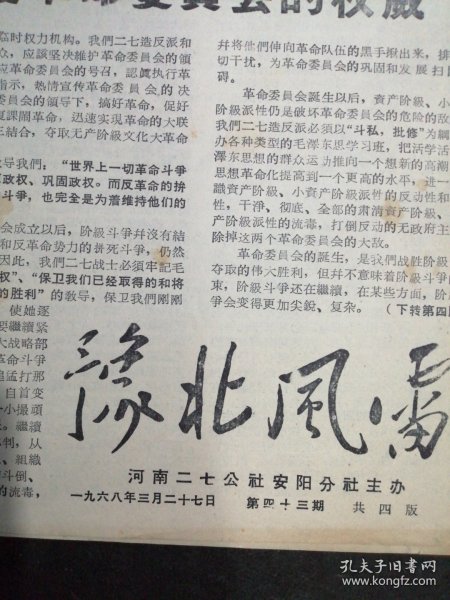 临时权力机构。我們二七造反派和
众，应該坚决維护革命委員会的領
应革命委員会的号召，認眞执行革
指示，热情宣传革命委員会的决
委員会的領导下，搞好革命，促好
复課閙革命，迅速实現革命的大联
三結合，夺取无产阶級文化大革命
导我們：“世界上一切革命斗爭
政权、巩固政权。而反革命的拚
斗爭，也完全是为着維持他們的
会成立以后，阶級斗爭幷沒有結
和反革命势力的垂死斗爭，仍然
因此，我們二七战士必須牢記毛
权”、“保卫我們已經取得的和将
的胜利”的教导，保卫我們刚刚
使她逐
要繼續紧
大战略部
革命斗爭
追猛打那
自首变
一小撮頑
繼續
判，从
組織
斗倒、
的流毒，
幷将他們伸向革命队伍的黑手揪出来，排
切干扰，为革命委員会的巩固和发展扫
碍。
革命委員会誕生以后，資产阶級、小
阶級派性仍是破坏革命委員会的危险的敌
我們二七造反派必須以“斗私，批修”为綱
办各种类型的毛澤东思学习班，把活学活
澤东思想的群众运动推向一个想新的高潮
思想革命化提高到一个更高的水平，进一
識資产阶級、小資产阶級派性的反动性和
性，干净、彻底、全部的肃清資产阶級、
产阶級派性的流毒，打倒反动的无政府主
除掉这两个革命委員会的大敌。
革命委員会的誕生，是我們战胜阶級
夺取的伟大胜利，但幷不意味着阶級斗爭
束，阶級斗爭还在繼續，在某些方面，阶
爭会变得更加尖銳、复杂。（下转第四
豫北风雷
河南二七公社安阳分社主办
一九六八年三月二十七日 第四十三期 共四版
孔夫子旧书网
www.kongfz.com